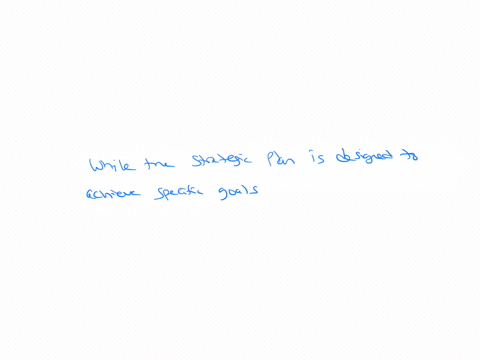 While the Strategic Plan is designed to
achieve specific goals